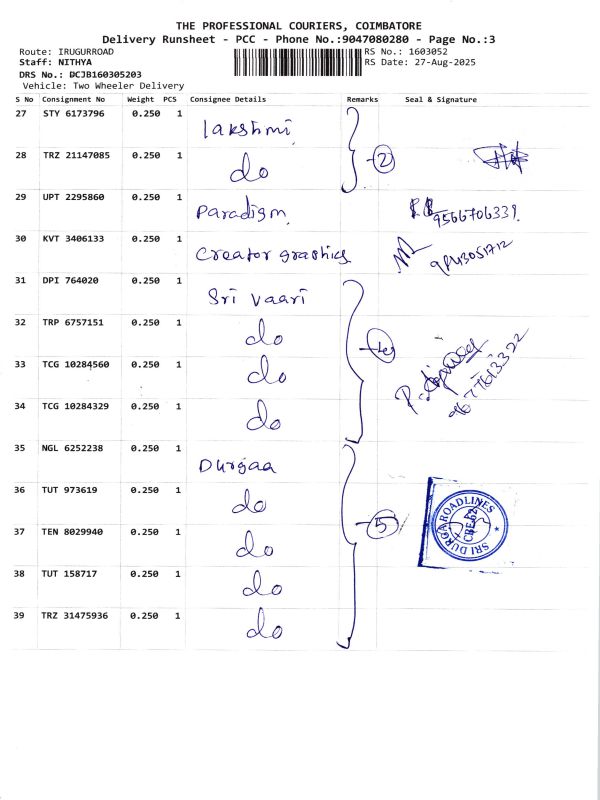 THE PROFESSIONAL COURIERS, COIMBATORE
Delivery Runsheet - PCC - Phone No.:9047080280 - Page No.:3
Route: IRUGURROAD
Staff: NITHYA
DRS No.: DCJB160305203
Vehicle: Two Wheeler Delivery
RS No.: 1603052
RS Date: 27-Aug-2025
S No Consignment No Weight PCS Consignee Details Remarks Seal & Signature
27 STY 6173796 0.250 1 Lakshmi
28 TRZ 21147085 0.250 1 do 2
29 UPT 2295860 0.250 1 Paradism 9566706339
30 KVT 3406133 0.250 1 Creator graphics
31 DPI 764020 0.250 1 Sri vaari
32 TRP 6757151 0.250 1 do
33 TCG 10284560 0.250 1 do
34 TCG 10284329 0.250 1 do
35 NGL 6252238 0.250 1 Durgaa
36 TUT 973619 0.250 1 do
37 TEN 8029940 0.250 1 do 5
38 TUT 158717 0.250 1 do
39 TRZ 31475936 0.250 1 do
SRI DURGA ROADLINES